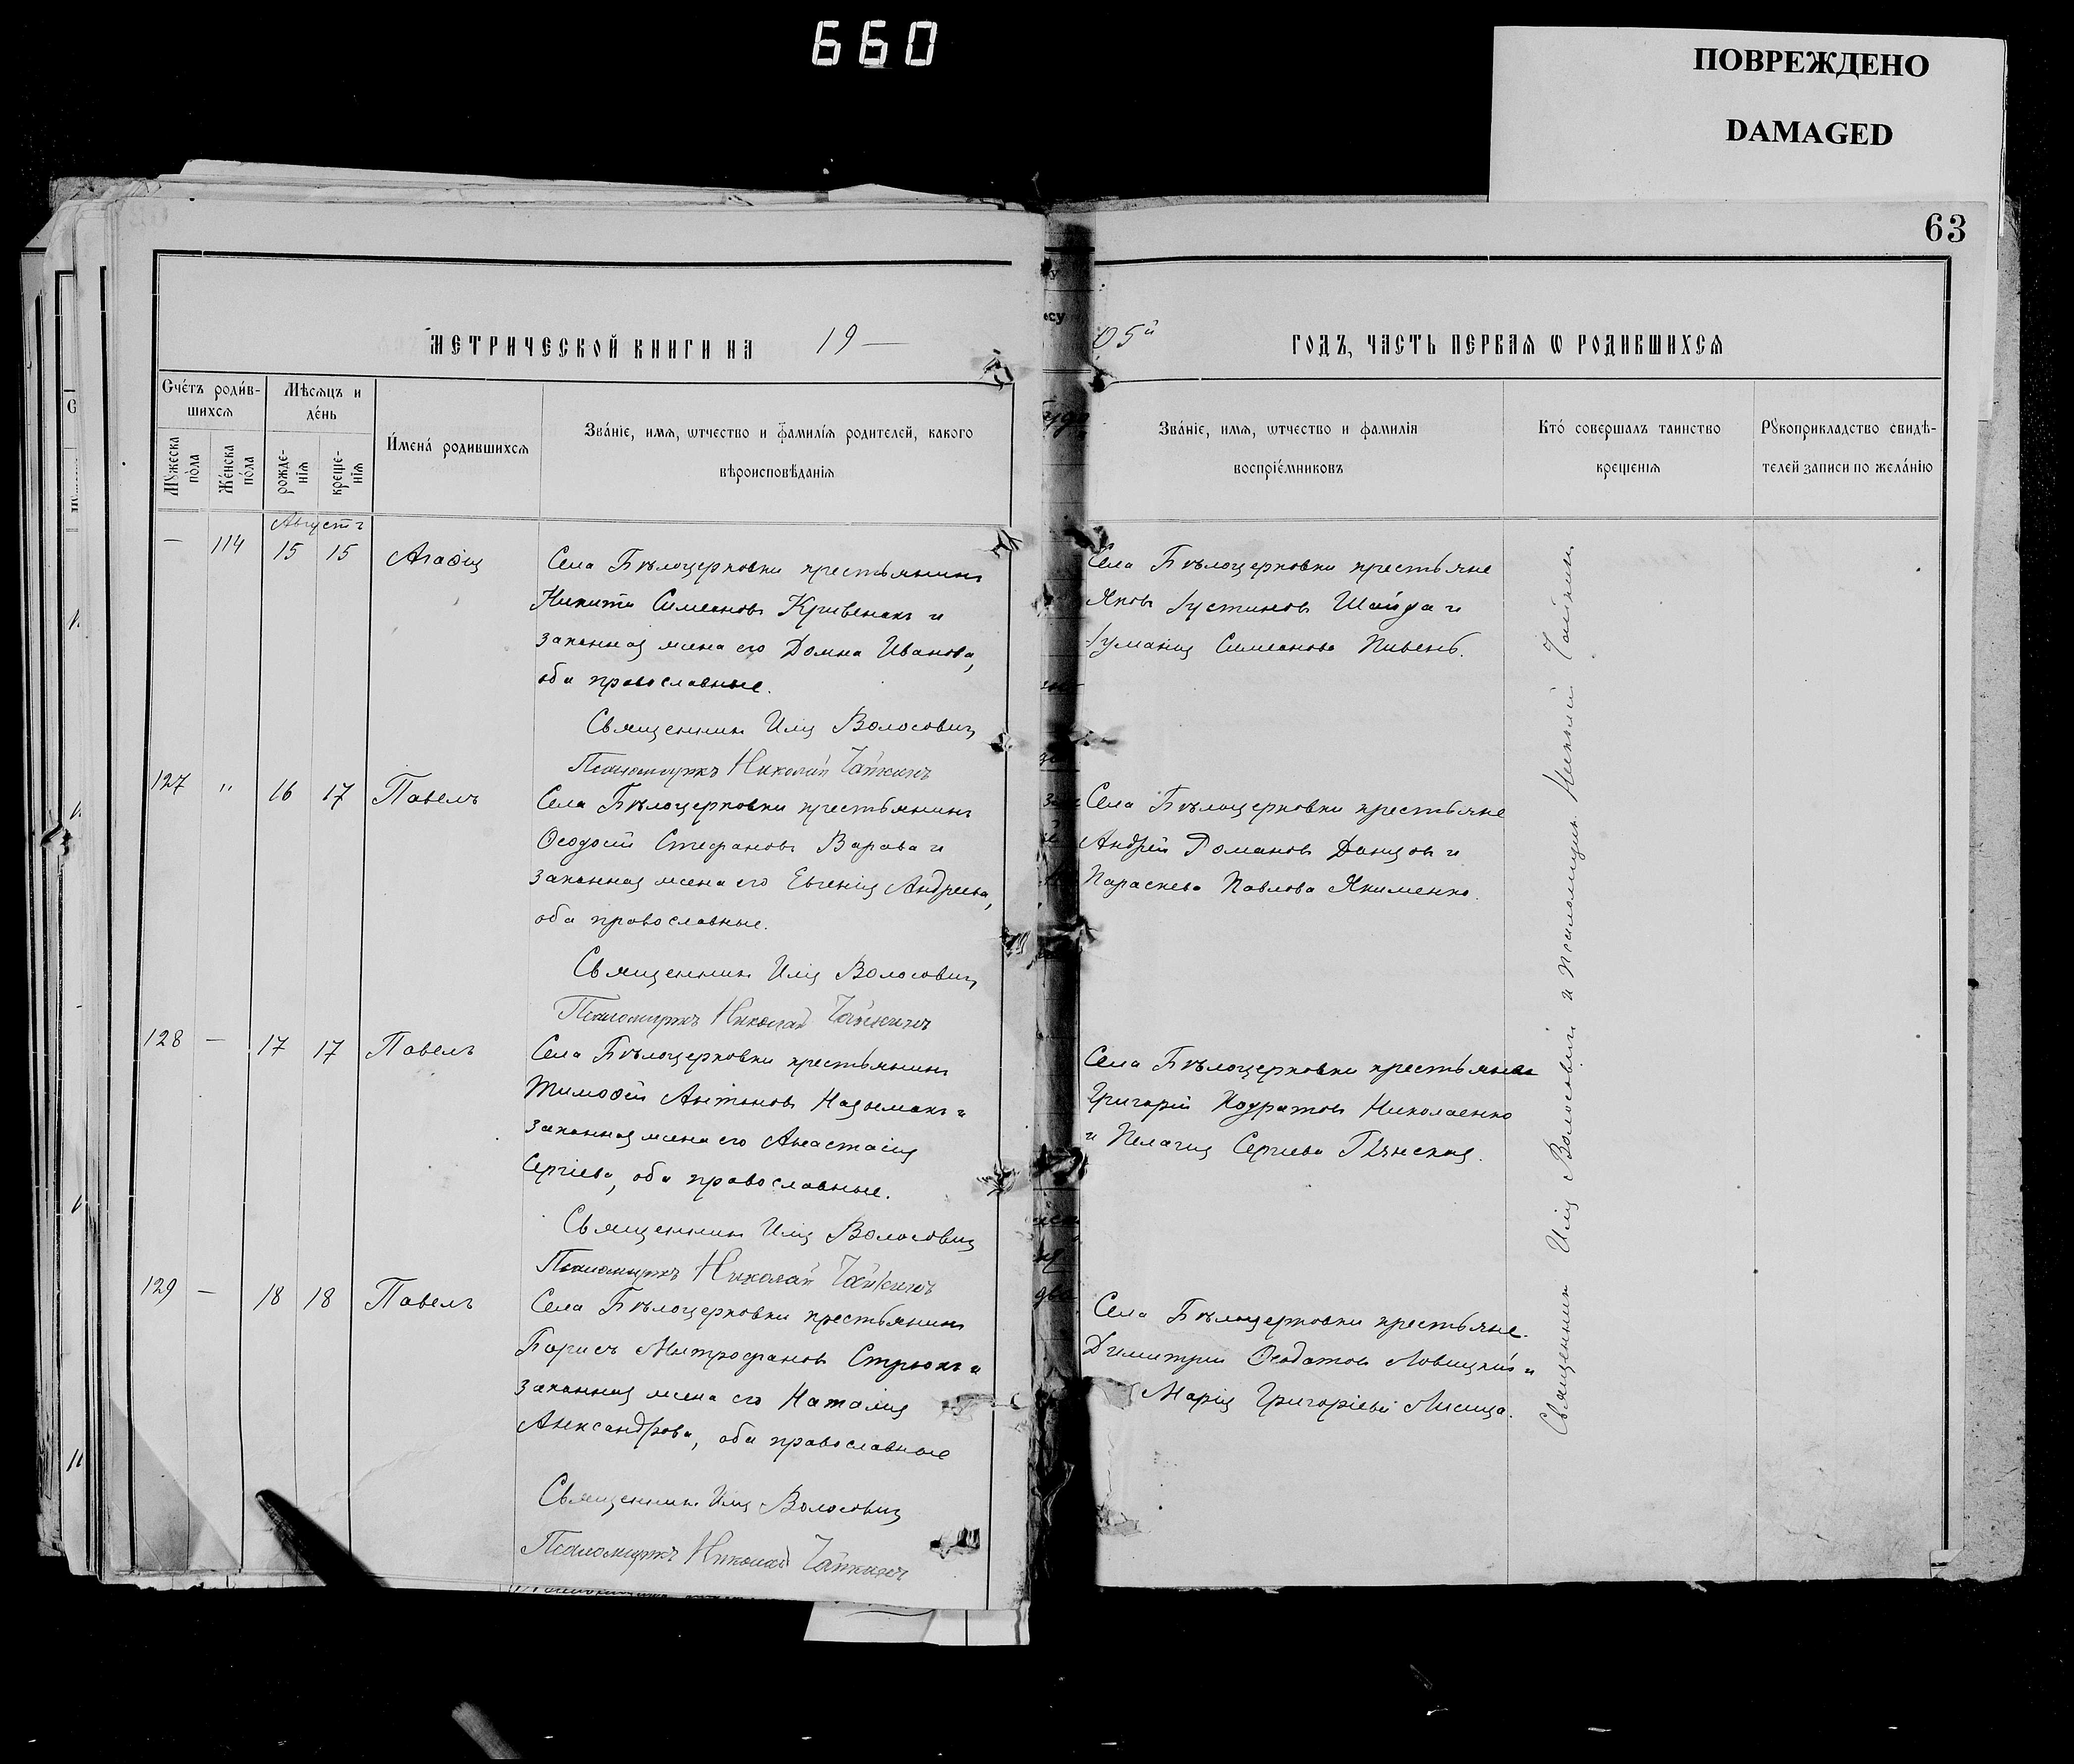 660
ПОВРЕЖДЕНО
DAMAGED
63
МЕТРИЧЕСКОЙ КНИГИ НА 19 —
05й ГОДЪ, ЧАСТЬ ПЕРВАЯ Ѡ РОДИВШИХСЯ
Счéтъ роди́в-
шихсѧ
Мѣсѧцъ и
дéнь
Мꙋжеска
по́ла
Жéнска
по́ла
рождé-
нїѧ
креще-
нїѧ
И́мена́ родившихсѧ
Зва́нїе, имѧ, ѡтчество и фамилїѧ родителей, какого
вѣроисповѣданїѧ
Зва́нїе, имѧ, ѡтчество и фамилїѧ
воспрїе́мниковъ
Кто́ совершалъ таинство
крещенїѧ
Рꙋкоприкладство свидѣ-
телей записи по жела́нїю
Августъ
— 114 15 15 Агафія
Села Бѣлоцерковки крестьянинъ
Никита Симеоновъ Кривенокъ и
законная жена его Домна Иванова,
оба православные.
Священникъ Илія Волосовичъ
Псаломщикъ Николай Чайкинъ
Села Бѣлоцерковки крестьяне
Яковъ Іустиновъ Шайда и
Іуманія Симеонова Пивень.
127 " 16 17 Павелъ
Села Бѣлоцерковки крестьянинъ
Ѳеодосій Стефановъ Варава и
законная жена его Евгенія Андреева,
оба православные.
Священникъ Илія Волосовичъ
Псаломщикъ Николай Чайкинъ
Села Бѣлоцерковки крестьяне
Андрей Романовъ Донцов и
Параскева Павлова Якименко.
128 — 17 17 Павелъ
Села Бѣлоцерковки крестьянинъ
Тимофей Антоновъ и
законная жена его Анастасія
Сергіева, оба православные.
Священникъ Илія Волосовичъ
Псаломщикъ Николай Чайкинъ
Села Бѣлоцерковки крестьяне
Григорій Кодратовъ Николаенко
и Пелагія Сергиева
129 — 18 18 Павелъ
Села Бѣлоцерковки крестьянинъ
Борисъ Митрофановъ Стрюкъ и
законная жена его Наталія
Александрова, оба православные
Священникъ Илія Волосовичъ
Псаломщикъ Николай Чайкинъ
Села Бѣлоцерковки крестьяне.
Димитрий Ѳеодотовъ Ловицкій и
Марія Григоріева Лисица.
Священникъ Илія Волосовичъ и псаломщикъ Николай Чайкинъ